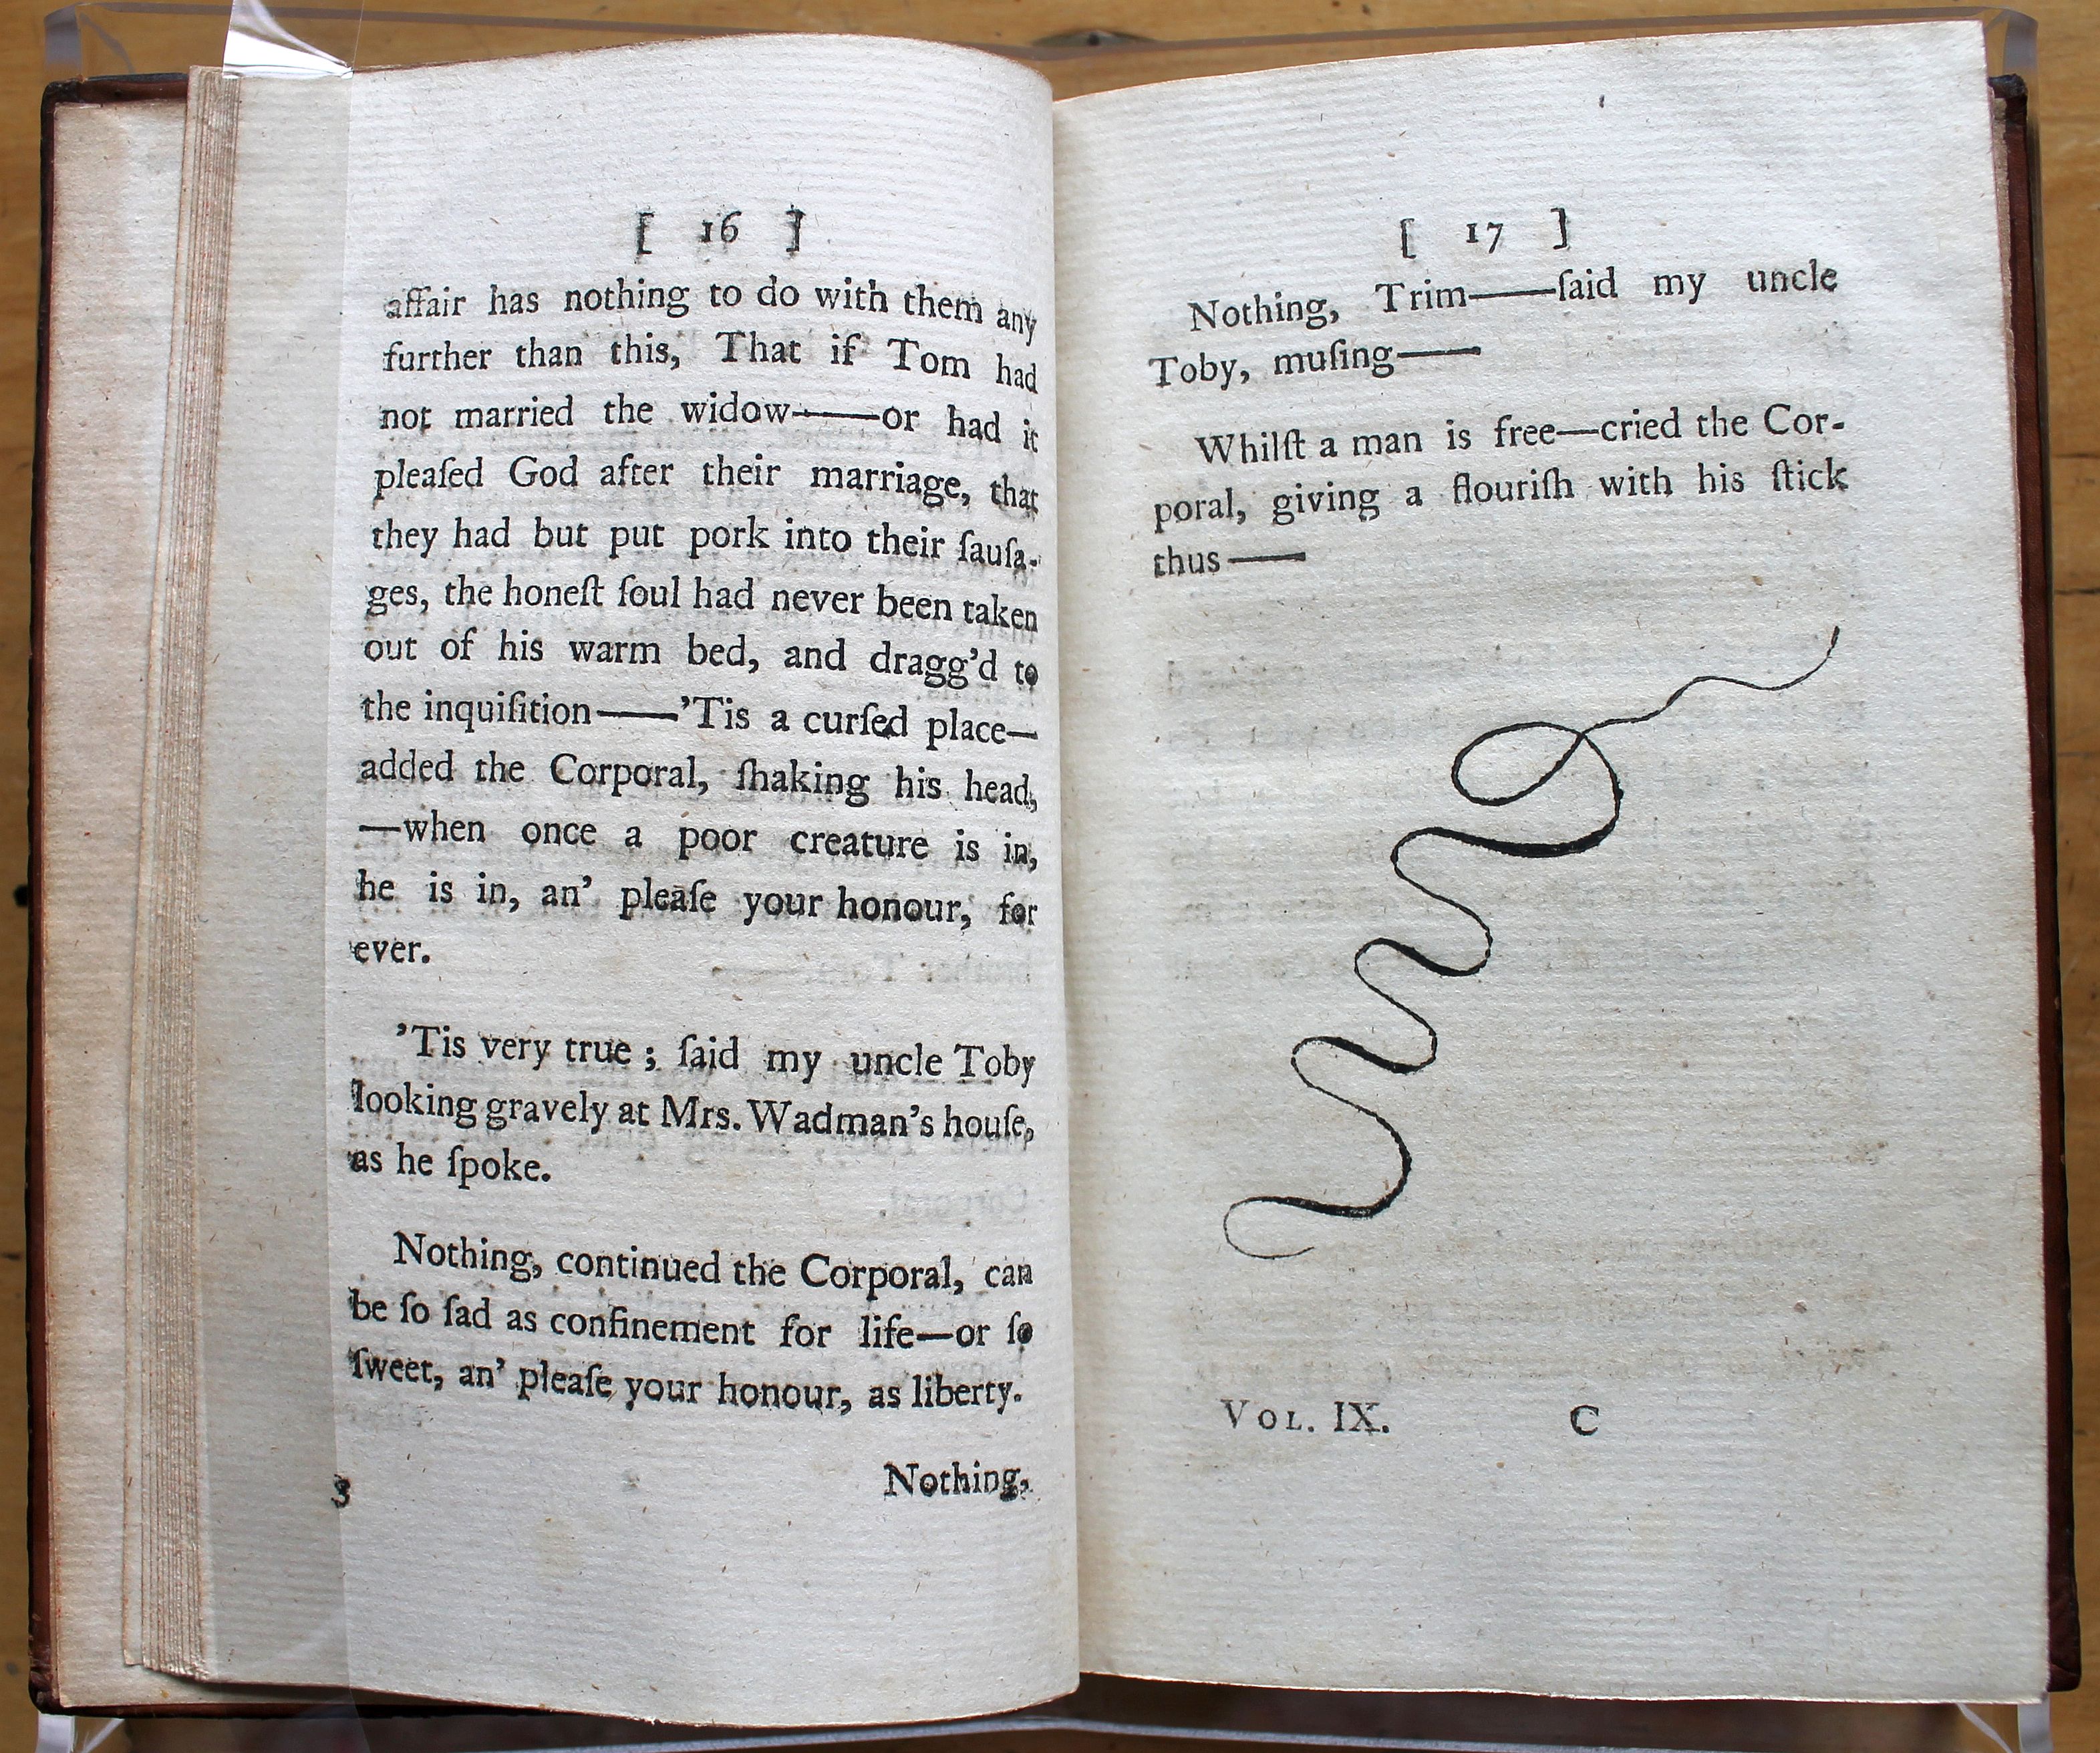 [ 16 ]
affair has nothing to do with them any
further than this, That if Tom had
not married the widow——or had it
pleaſed God after their marriage, that
they had but put pork into their ſauſa-
ges, the honeſt ſoul had never been taken
out of his warm bed, and dragg’d to
the inquiſition——’Tis a curſed place—
added the Corporal, ſhaking his head,
—when once a poor creature is in,
he is in, an’ pleaſe your honour, for
ever.
’Tis very true ; ſaid my uncle Toby
looking gravely at Mrs. Wadman’s houſe,
as he ſpoke.
Nothing, continued the Corporal, can
be ſo ſad as confinement for life—or ſo
ſweet, an’ pleaſe your honour, as liberty.
3 Nothing,
[ 17 ]
Nothing, Trim——ſaid my uncle
Toby, muſing——
Whilſt a man is free—cried the Cor-
poral, giving a flouriſh with his ſtick
thus——
VOL. IX. C